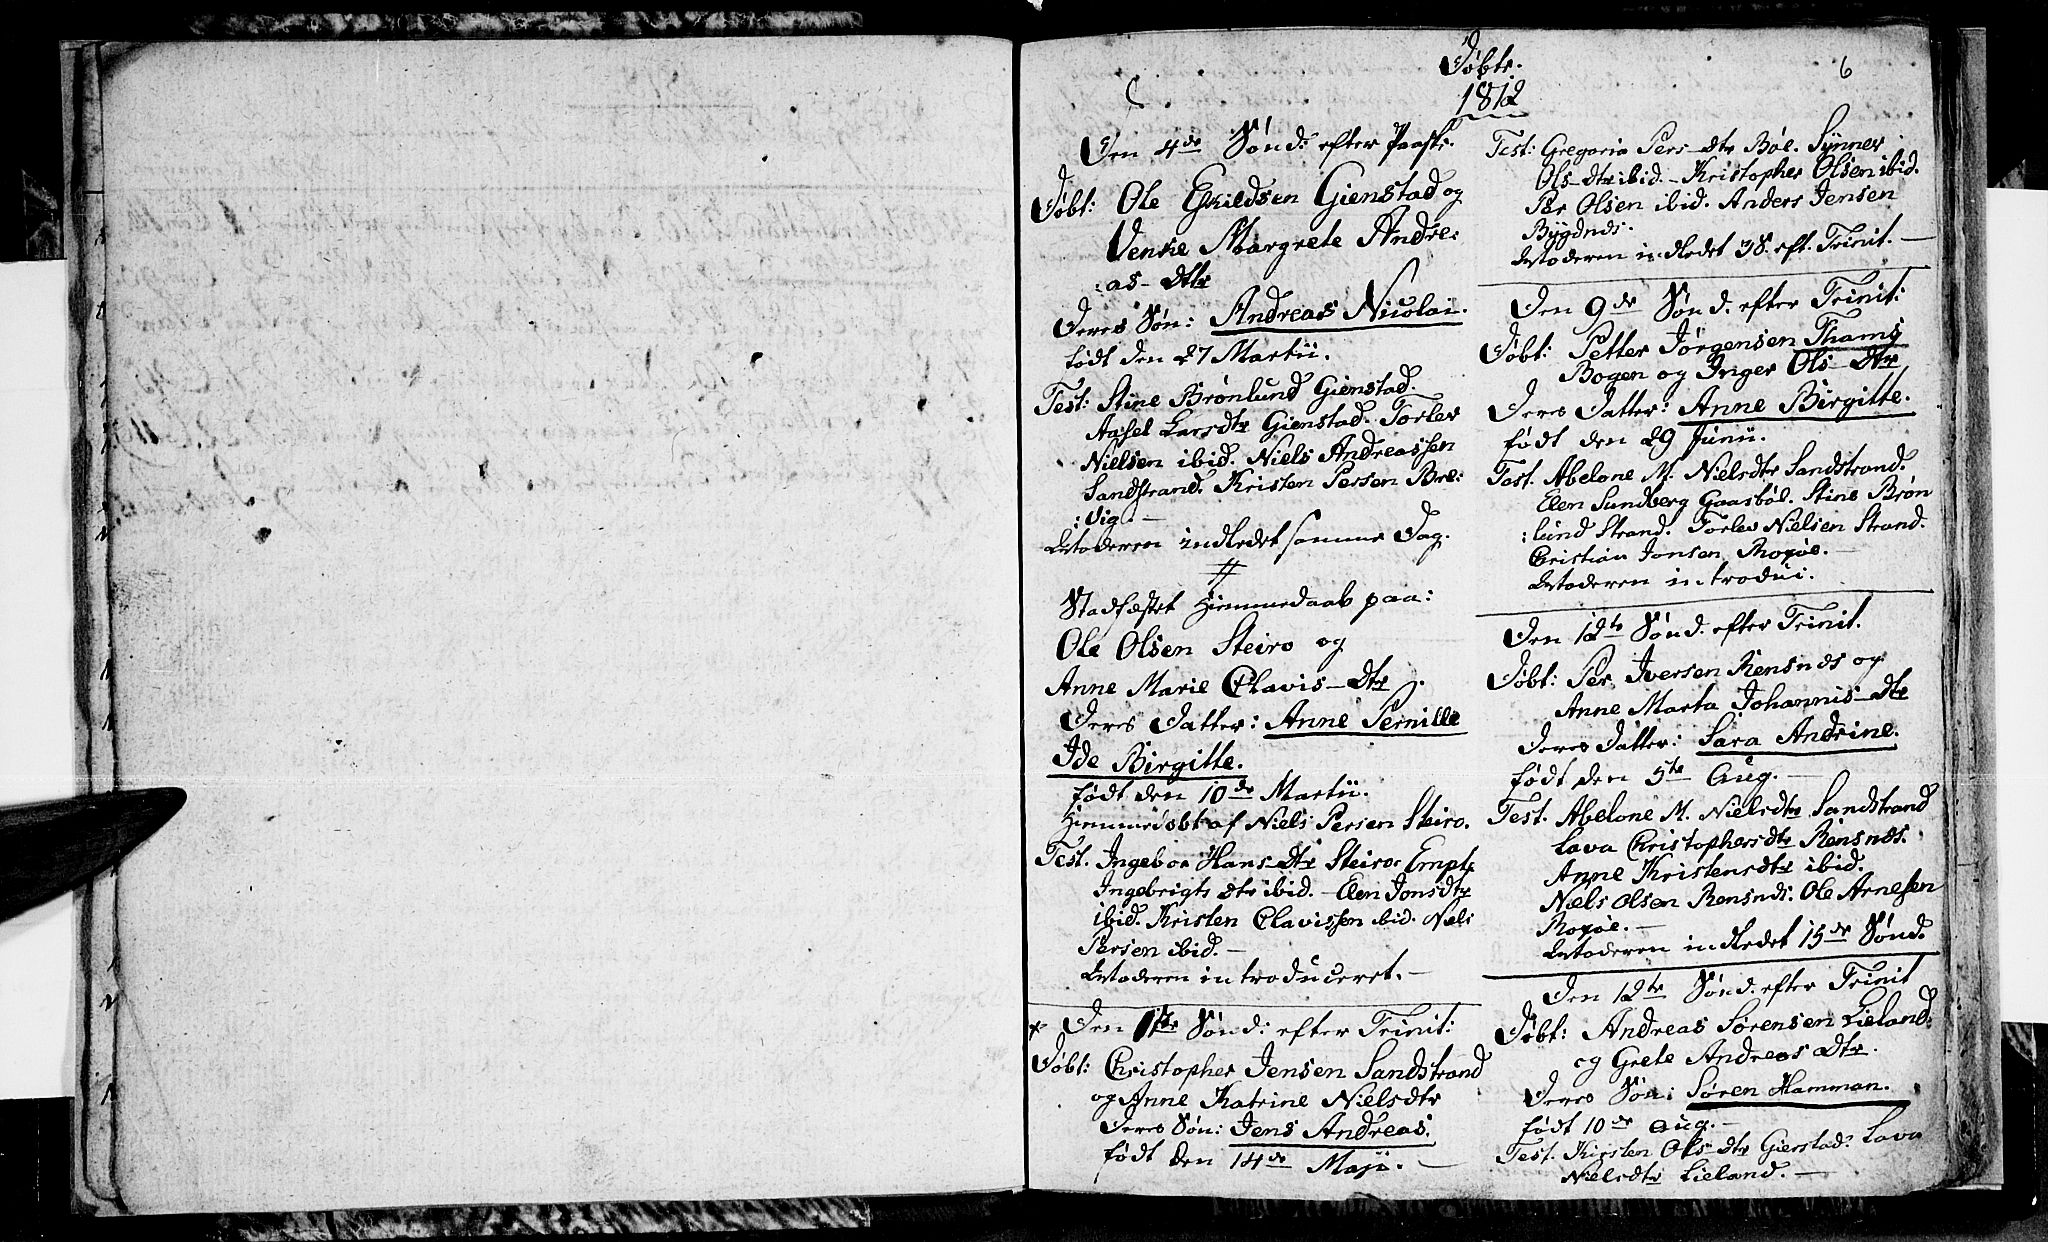 Døbte.
6
1812
Den 4de Sønd: efter Paaske.
Døbt: Ole Eskildsen Gienstad og
Venke Margrete Andre:
:as-Dttr
Deres Søn: Andreas Nicolai.
født den 27 Martii.
Test: Stine Brønlund Gienstad.
Aasel Larsdtr Gienstad. Torlev
Nielsen ibid. Niels Andreassen
Sandstrand. Kristen Persen Bre:
:vig.-
Moderen indledet samme Dag.
Stadfæstet Hiemmedaab paa:
Ole Olsen Steiro og
Anne Marie Clavis-Dtr.
Deres Datter: Anne Pernille
Ide Birgitte.
født den 10de Martii.
Hiemmedøbt af Niels Persen Steiro.
Test. Ingebor Hans Dtr Steiro.
Ingebrigts Dtr ibid. - Elen Jonsdtr
ibid. Kristen Clavissen ibid. Niels
Persen ibid.-
Moderen introduceret.-
* Den 1ste Sønd: efter Trinit:
Døbt: Christopher Jensen Sandstrand
og Anne Katrine Nielsdtr
Deres Søn: Jens Andreas.
født den 14de Maji.-
Test: Gregoria Pers-Dtr Bøe. Synnev
Ols-Dtr ibid.- Kristopher Olsen ibid.
Per Olsen ibid. Anders Jensen
Bygdnæs.
Moderen indledet 3 S. eft. Trinit.-
Den 9de Sønd. efter Trinit:
Døbt: Petter Jørgensen Thams
Bogen og Inger Ols-Dtr
Deres Datter: Anne Birgitte.
født den 29 Junii.
Test. Abelone M. Nielsdtr Sandstrand.
Elen Sundberg Gaasbøl. Stine Brøn
:lund Strand. Torlev Nielsen Strand.
Christian Jonsen Roxøe.-
Moderen introdui.
Den 12te Sønd. efter Trinit.
Døbt: Per Iversen Rensnæs og
Anne Marta Johannis-Dtr
Deres Datter: Sara Andrine.
født den 5te Aug.-
Test. Abelone M. Nielsdtr Sandstrand
Lava Christophersdtr Rensnæs.
Anne Kristensdtr ibid.
Niels Olsen Rensnæs. Ole Arnesen
Roxøe.-
Moderen indledet 15de Sønd.
Den 12te Sønd. efter Trinit
Døbt: Andreas Sørensen Lieland:
og Grete Andreas Dtr.
Deres Søn: Søren Hamman.
født 10de Aug.-
Test. Kirsten Ols-Dtr Gienstad. Lava
Nielsdtr Lieland.-